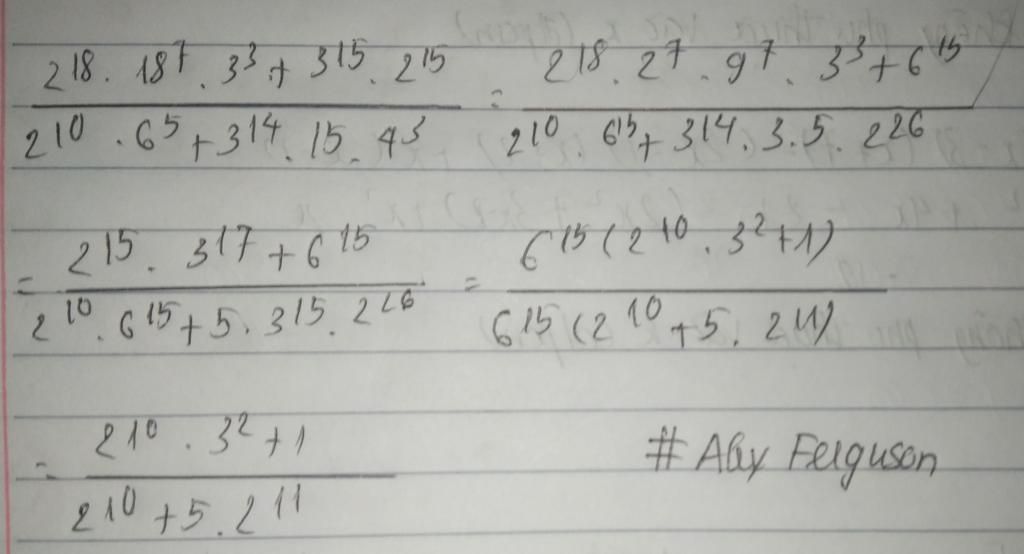 2^18 . 18^7 . 3^3 + 3^15 . 2^15 / 2^10 . 6^5 + 3^14 . 15 . 4^3 = 2^18 . 2^7 . 9^7 . 3^3 + 6^15 / 2^10 . 6^15 + 3^14 . 3 . 5 . 2^26
= 2^15 . 3^17 + 6^15 / 2^10 . 6^15 + 5 . 3^15 . 2^26 = 6^15 (2^10 . 3^2 + 1) / 6^15 (2^10 + 5 . 2^11)
= 2^10 . 3^2 + 1 / 2^10 + 5 . 2^11
# Alex Ferguson